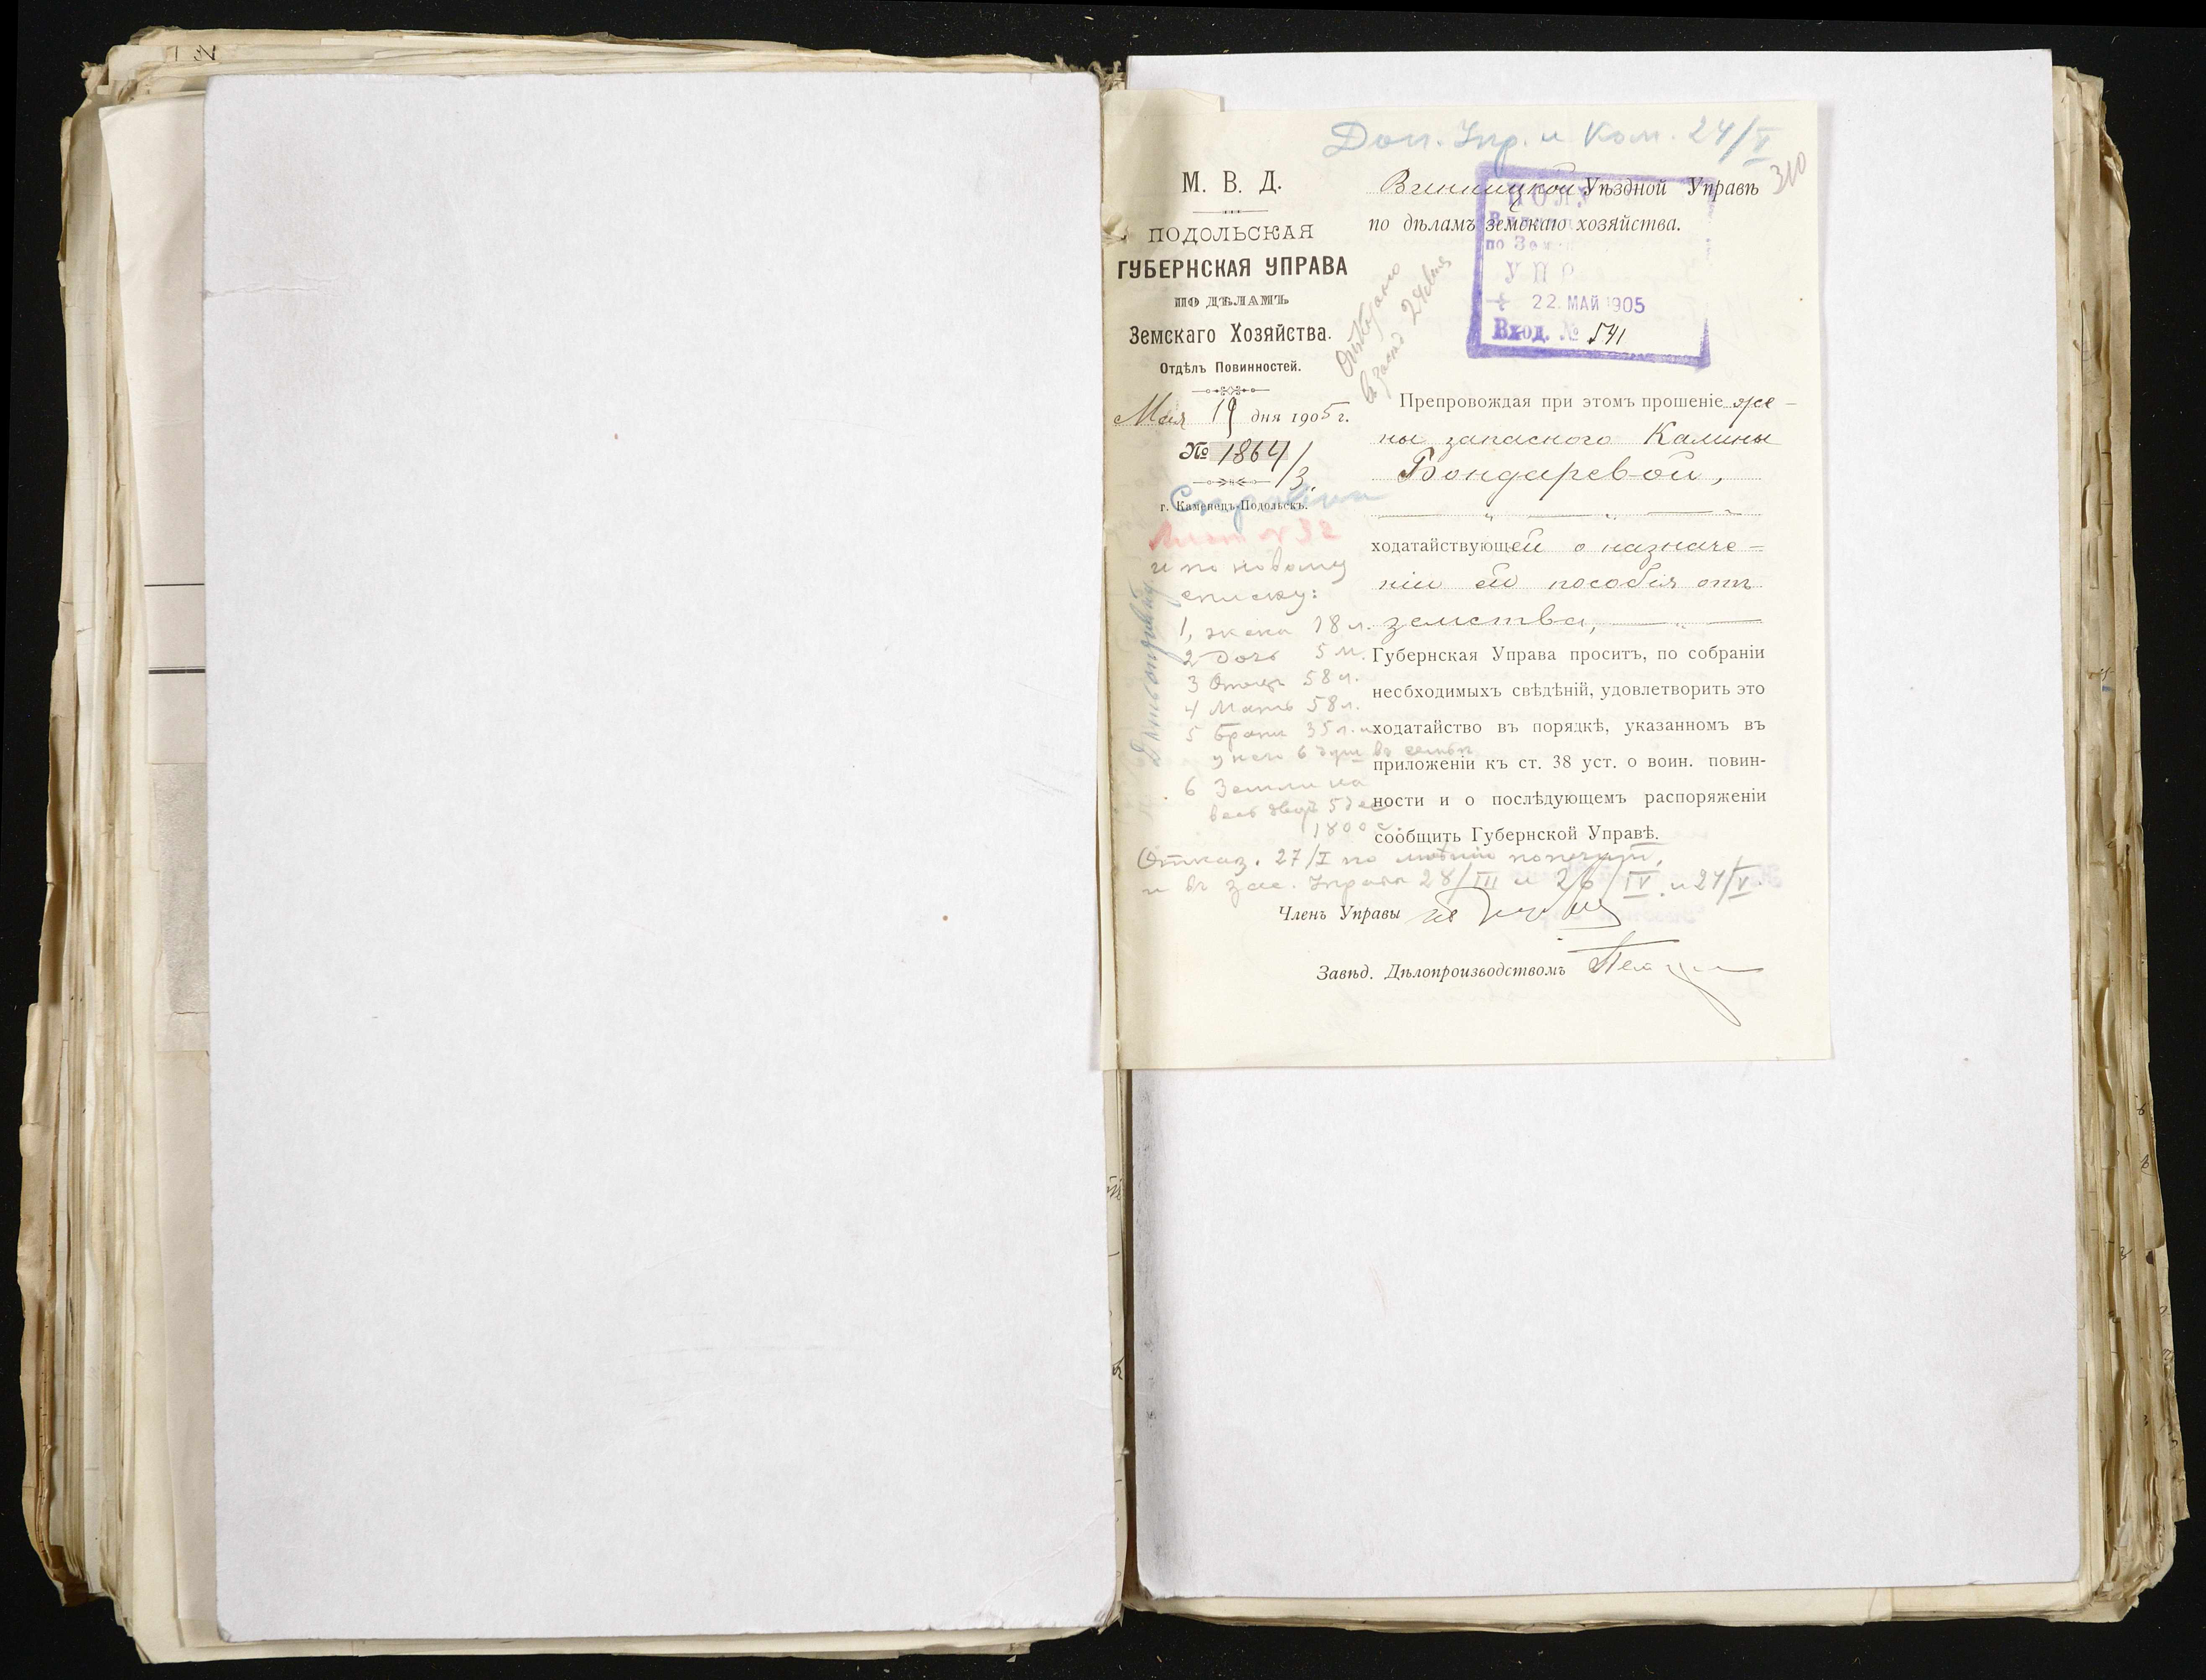 Доп. Упр. и Ком. 24/V
310
М. В. Д.
ПОДОЛЬСКАЯ
ГУБЕРНСКАЯ УПРАВА
ПО ДѢЛАМЪ
Земскаго Хозяйства.
Отдѣлъ Повинностей.
Мая 19 дня 1905 г.
№ 1864/3.
г. Каменецъ-Подольскъ.
Лист № 32
и по новому
списку:
1, жена 18 л.
2 Дочь 5 м.
3 Отецъ 58 л.
4 Мать 58 л.
5 Братъ 35 л. и
у него 6 душ въ семьѣ
6 Земли на
весь дворъ 5 дес
1800 с.
Винницкой Уѣздной Управѣ
по дѣламъ земскаго хозяйства.
ПОЛУ
по Зем
УПР
22. МАЙ 1905
Вход. № 541
Отказано
въ засѣд 24 мая
Препровождая при этомъ прошеніе же-
ны запаснаго Калины
Бондаревой,
ходатайствующей о назначе-
ніи ей пособія отъ
земства,
Губернская Управа проситъ, по собраніи
необходимыхъ свѣдѣній, удовлетворить это
ходатайство въ порядкѣ, указанномъ въ
приложеніи къ ст. 38 уст. о воин. повин-
ности и о послѣдующемъ распоряженіи
сообщить Губернской Управѣ.
Отказ. 27/I по мнѣнію попечит.
и въ зас. Управы 28/III и 26/IV. и 24/V.
Членъ Управы
Завѣд. Дѣлопроизводствомъ